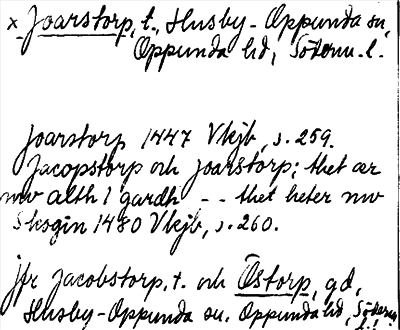 x Joarstorp, t., Husby-Oppunda sn,
Oppunda hd, Söderm. l.
Joarstorp 1447 Vkjb, s. 259.
Jacopstorp och joarstorp; thet ær
nw alth 1 gardh - - thet heter nw
Skogin 1480 Vkjb, s. 260.
jfr Jacobstorp, t. och Östorp, gd,
Husby-Oppunda sn. Oppunda hd, Söderm.
l.!